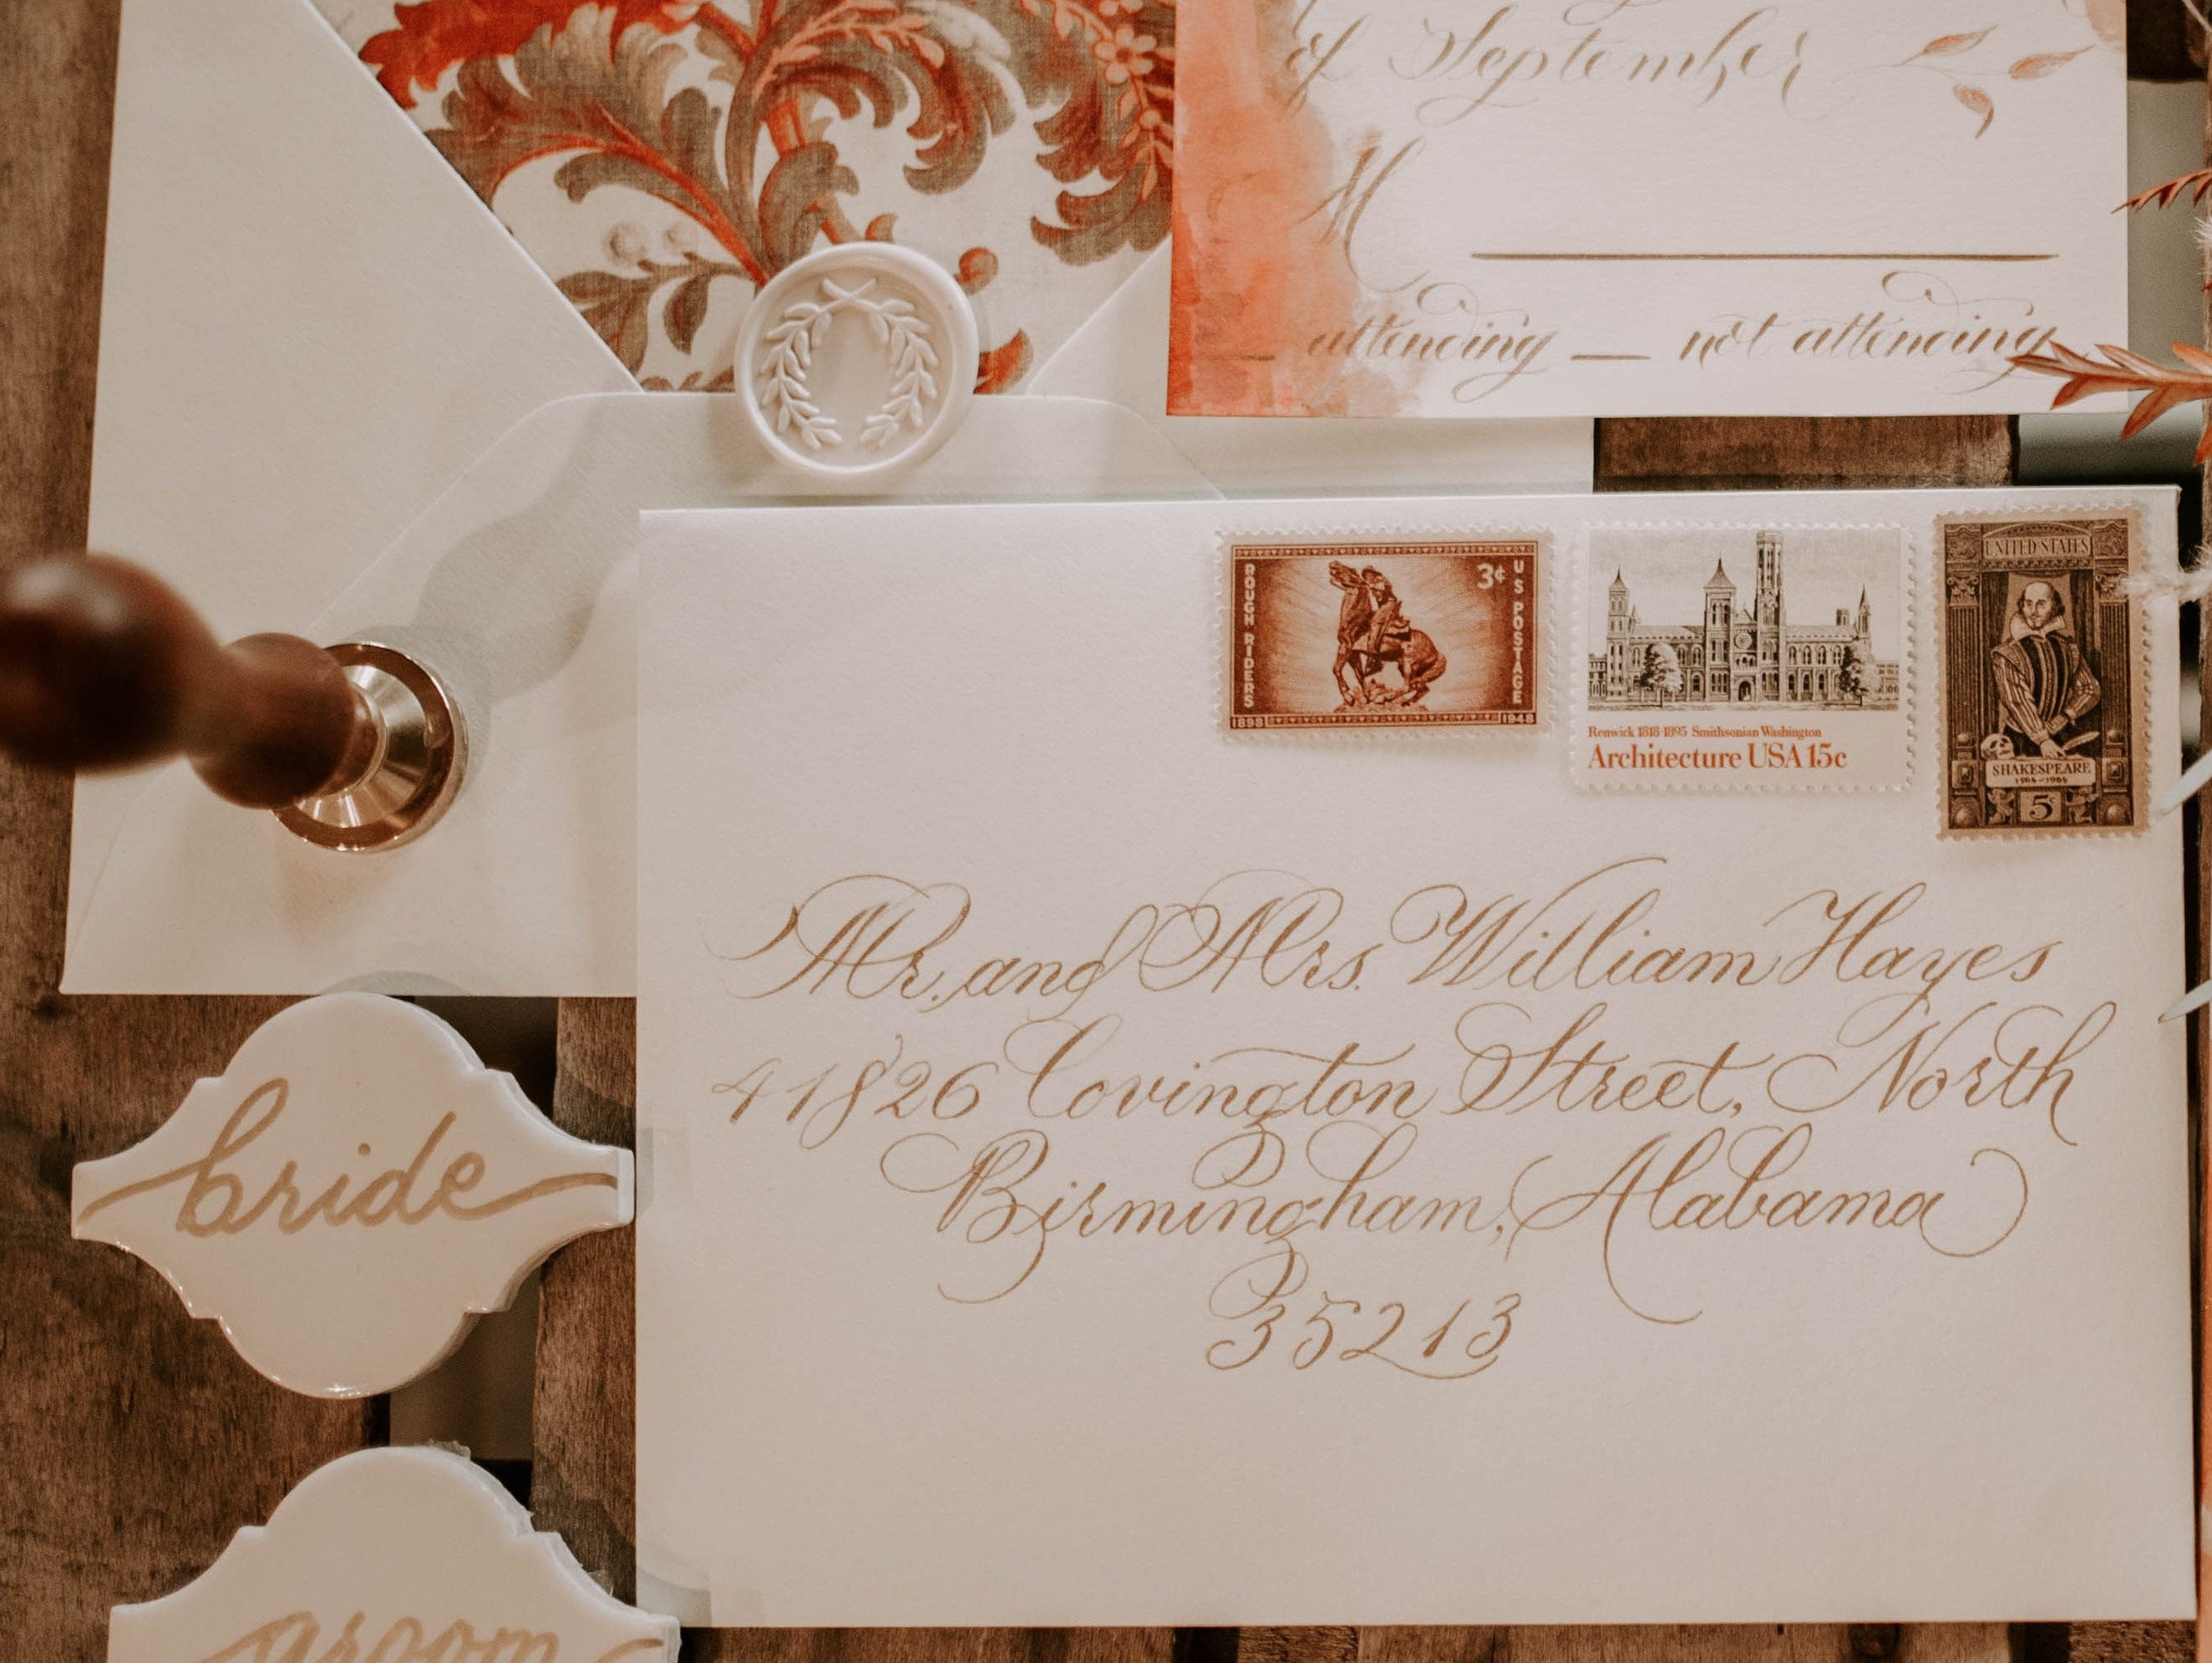 of September
M
attending not attending
ROUGH RIDERS
3¢
U S POSTAGE
1898 1948
Renwick 1818-1895 Smithsonian Washington
Architecture USA 15c
UNITED STATES
SHAKESPEARE
1564-1964
5¢
Mr. and Mrs. William Hayes
41826 Covington Street, North
Birmingham, Alabama
35213
bride
groom